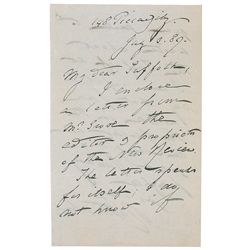 148 Piccadilly.
My dear Suffolk,
I enclose
a letter from
Mr. Grove the
editor & proprietor
of the New Review
The letter speaks
for itself I do
not know if